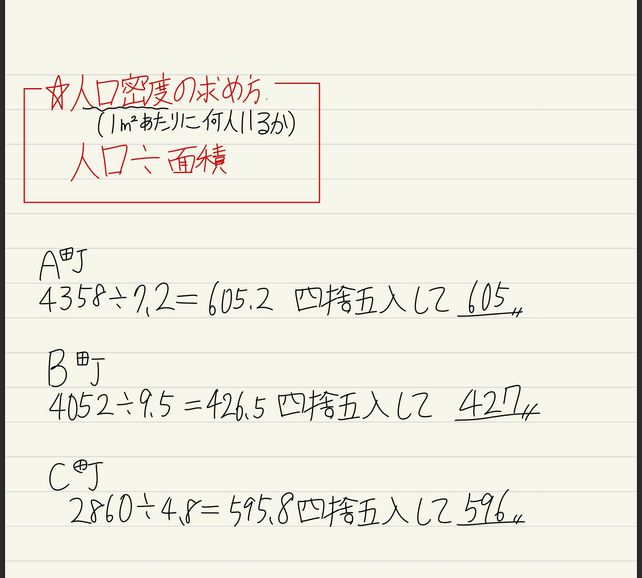 ☆人口密度の求め方
(1m²あたりに何人いるか)
人口÷面積
A町
4358÷7.2=605.2 四捨五入して 605〃
B町
4052÷9.5=426.5 四捨五入して 427〃
C町
2860÷4.8=595.8 四捨五入して 596〃